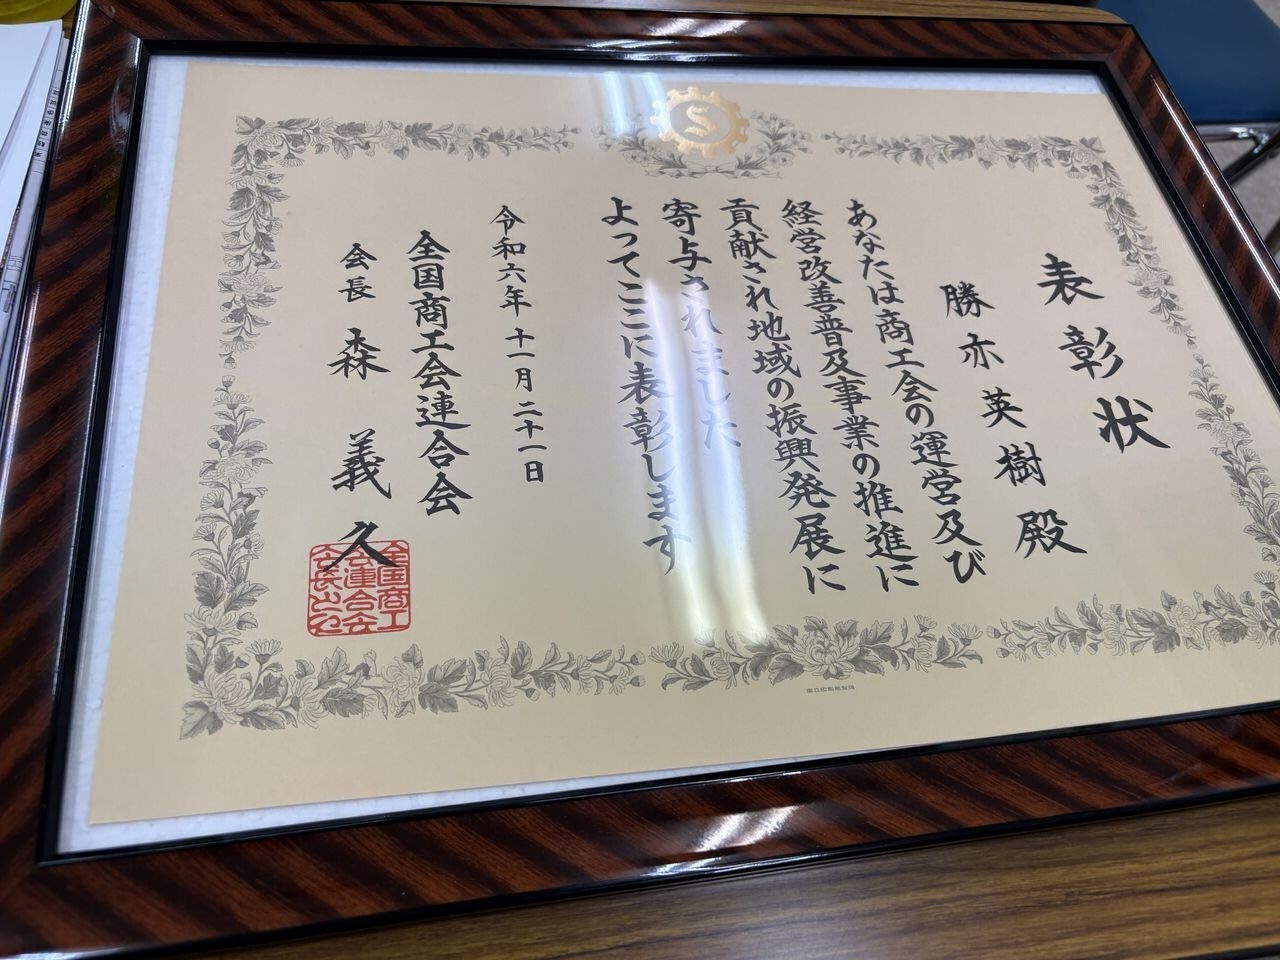 表彰状
勝亦英樹殿
あなたは商工会の運営及び
経営改善普及事業の推進に
貢献され地域の振興発展に
寄与されました
よってここに表彰します
令和六年十一月二十一日
全国商工会連合会
会長 森義久
全国商工
会連合会
会長之印
S
国立印刷局製造